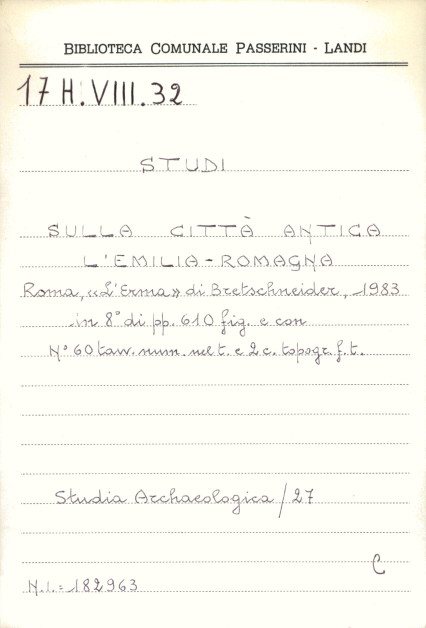 BIBLIOTECA COMUNALE PASSERINI - LANDI
17 H.VIII.32
STUDI
SULLA CITTÀ ANTICA
L'EMILIA-ROMAGNA
Roma, «L'Erma» di Bretschneider, 1983
in 8° di pp. 610 fig. e con
N° 60 tav. num. nel t. e 2 c. topogr. f. t.
Studia Archaeologica / 27
C
N.I.= 182963